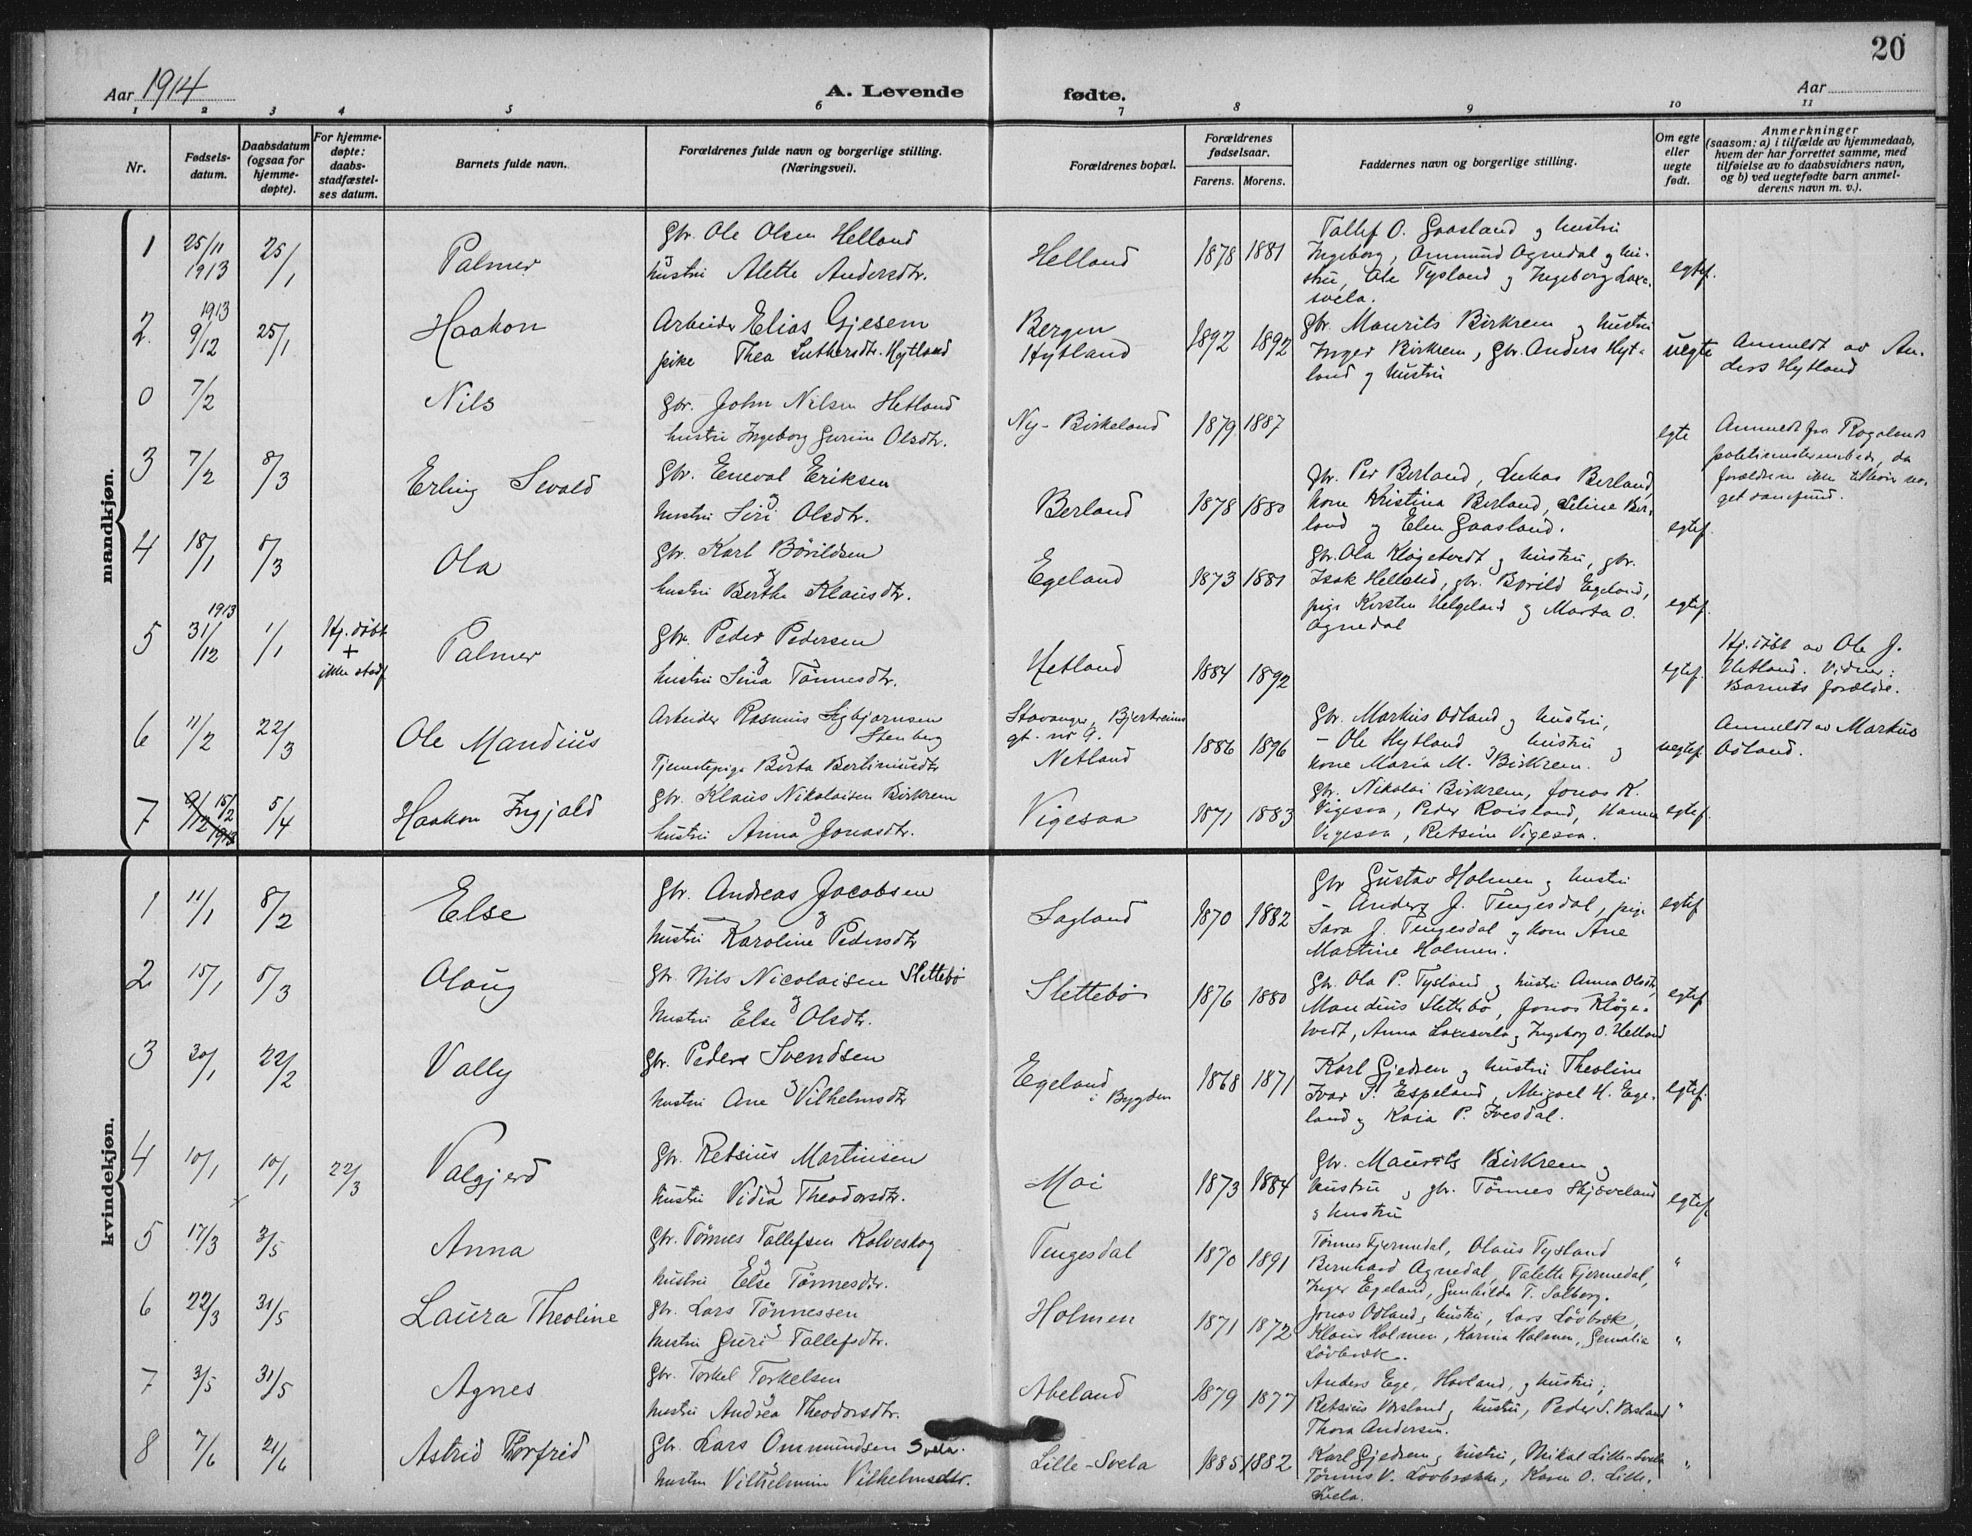 20
Aar 1914
A. Levende fødte.
Aar
1 2 3 4 5 6 7 8 9 10 11
Nr.
Fødsels-
datum.
Daabsdatum
(ogsaa for
hjemme-
døpte).
For hjemme-
døpte:
daabs-
stadfæstel-
ses datum.
Barnets fulde navn.
Forældrenes fulde navn og borgerlige stilling.
(Næringsvei).
Forældrenes bopæl.
Forældrenes
fødselsaar.
Farens. Morens.
Faddernes navn og borgerlige stilling.
Om egte
eller
uegte
født.
Anmerkninger
(saasom: a) i tilfælde av hjemmedaab,
hvem der har forrettet samme, med
tilføielse av to daabsvidners navn,
og b) ved uegtefødte barn anmel-
derens navn m. v.).
mandkjøn.
1 25/11 1913 25/1 Palmer
Gbr. Ole Olsen Helland
og
hustru Alette Andersdtr.
Helland 1878 1881
Tallef O. Gaasland og hustru
Ingeborg, Ommund Ognedal og hu-
stru, Ole Tysland og Ingeborg Laxe-
svela.
egtef.
2. 1913 9/12 25/1 Haakon
Arbeider Elias Gjesem
pike Thea Luthersdtr. Hytland
Bergen
Hytland
1892 1892
Gbr. Maurits Birkrem og hustru
Inger Birkrem, Gbr. Anders Hyt-
land og hustru
uegte
Anmeldt av An-
ders Hytland
0 7/2 Nils
Gbr. John Nilsen Hetland
hustru Ingeborg Gurine Olsdtr.
Ny-Birkeland 1879 1887
egte
Anmeldt fra Rogalands
politimesterembede, da
forældrene ikke tilhører no-
get samfund.
3 7/2 8/3 Erling Sevald
Gbr. Eneval Eriksen
og
hustru Siri Olsdtr.
Berland 1878 1880
Gbr. Per Berland, Lukas Berland,
kone Kristina Berland, Seline Ber-
land og Elen Gaasland.
egtef.
4 18/1 8/3 Ola
Gbr. Karl Børildsen
og
hustru Berthe Klausdtr.
Egeland 1873 1881
Gbr. Ola Kløgetvedt og hustru, gbr.
Isak Helleled, gbr. Børild Egeland,
pige Kirsten Helgeland og Marta O.
Ognedal
egtef.
5 1913 31/12 1/1 Hj. døbt
+
ikke stadf.
Palmer
Gbr. Peder Pedersen
og
hustru Sina Tønnesdtr.
Hetland 1884 1892
egtef.
Hj. døbt av Ole J.
Hetland. Vidner:
Barnets forældre.
6 11/2 22/3 Ole Mandius
Arbeider Rasmus Sigbjørnsen
Stenberg
og
Tjenestepige Berta Bertiniusdtr
Stavanger, Bjerkreims
gt. nr 9.
Netland
1886 1896
Gbr. Markus Odland og hustru,
- Ole Hytland og hustru og
kone Maria M. Birkrem.
uegtef.
Anmeldt av Markus
Odland.
7 9/12 1913 15/2 5/4 Haakon Ingjald
Gbr. Klaus Nikolaisen Birkrem
og
hustru Anna Jonasdtr.
Vigesaa 1871 1883
Gbr. Nikolai Birkrem, Jonas K.
Vigesaa, Peder Røisland, Hanna
Vigesaa, Retsine Vigesaa.
egtef.
kvindekjøn.
1 11/1 8/2 Else
Gbr. Andreas Jacobsen
og
hustru Karoline Pedersdtr
Sagland 1870 1882
Gbr Gustav Holmen og hustru
- Anders J. Tengesdal, pige
Sara J. Tengesdal og kone Ane
Martine Holmen.
egtef
2 15/1 8/3 Olaug
Gbr. Nils Nicolaisen Slettebø
og
hustru Else Olsdtr.
Slettebø 1876 1880
Gbr. Ola P. Tysland og hustru Anna Olsdtr,
Mandius Slettebø, Jonas Kløge-
tvedt, Anna Laxesvela og Ingeborg O. Helland
egtef
3 30/1 22/2 Vally
Gbr. Peder Svendsen
og
hustru Ane Vilhelmsdtr
Egeland
i Bygden
1868 1871
Karl Gjedrem og hustru Theoline
Ivar S. Espeland, Abigael H. Ege-
land og Kaia P. Ivesdal.
egtef.
4 10/1 10/1 22/3 Valgjerd
Gbr. Retsius Martinsen
og
hustru Vidia Theodorsdtr.
Moi 1873 1884
Gbr. Maurits Birkrem og
hustru og gbr. Tønnes Skjæveland
og hustru
egtef.
5 17/3 3/5 Anna
Gbr. Tønnes Tallefsen Kalveskog
og
hustru Else Tønnesdtr.
Tengesdal 1870 1891
Tønnes Fjermedal, Olaus Tysland
Bernhard Ognedal, Talette Fjermedal,
Inger Egeland, Gunhilda T. Solberg.
"
6 22/3 31/5 Laura Theoline
Gbr. Lars Tønnessen
og
hustru Guri Tallefsdtr.
Holmen 1871 1872
Jonas Odland, hustru, Lars Løvbræk,
Klaus Holmen, Karina Holmen,
Løvbræk.
"
7 3/5 31/5 Agnes
Gbr. Torkel Torkelsen
og
hustru Andrea Theodorsdtr.
Abeland 1879 1877
Anders Ege, Hovland, og hustru,
Retsius Versland, hustru, Peder S. Versland
Thora Andersen.
"
8 7/6 21/6 Astrid Thorfrid
Gbr Lars Ommundsen Svela.
og
hustru Vilhelmine Vilhelmsdtr.
Lille-Svela 1885 1882
Karl Gjedrem og hustru, Mikal Lille-Svela
Tønnes V. Løvbrække, Karen O. Lille-
Svela.
"